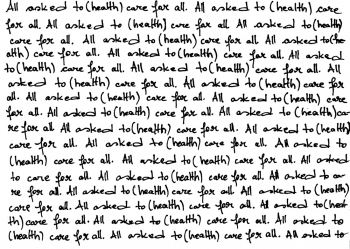 All asked to (health) care for all. All asked to (health) care
for all. All asked to (health) care for all. All asked to (health)
care for all. All asked to (health) care for all. All asked to (he
alth) care for all. All asked to (health) care for all. All asked
to (health) care for all. All asked to (health) care for all. All
asked to (health) care for all. All asked to (health) care for
all. All asked to (health) care for all. All asked to (health) care
for all. All asked to (health) care for all. All asked to (health) ca
re for all. All asked to (health) care for all. All asked to (health)
care for all. All asked to (health) care for all. All asked to
(health) care for all. All asked to (health) care for all. All asked
to care for all. All asked to (health) care for all. All asked to ca
re for all. All asked to (health) care for all. All asked to (health)
care for all. All asked to (health) care for all. All asked to (heal
th) care for all. All asked to (health) care for all. All asked to
(health) care for all. All asked to (health) care for all. All asked to